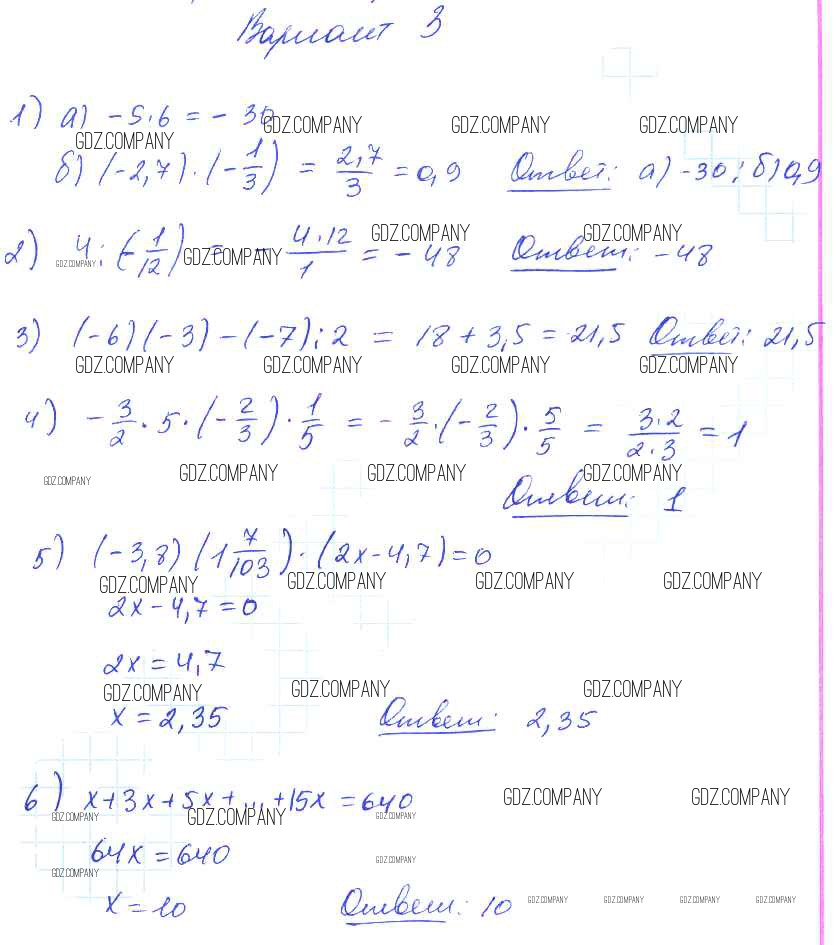 Вариант 3
1) а) -5·6 = -30 GDZ.COMPANY GDZ.COMPANY GDZ.COMPANY
GDZ.COMPANY
б) (-2,7)·(-1/3) = 2,7/3 = 0,9 Ответ: а) -30; б) 0,9
2) 4 : (-1/12) = - 4·12/1 = -48 Ответ: -48
GDZ.COMPANY GDZ.COMPANY GDZ.COMPANY GDZ.COMPANY
3) (-6)(-3)-(-7):2 = 18+3,5 = 21,5 Ответ: 21,5
GDZ.COMPANY GDZ.COMPANY GDZ.COMPANY GDZ.COMPANY
4) -3/2 · 5 · (-2/3) · 1/5 = -3/2 · (-2/3) · 5/5 = 3·2/2·3 = 1
GDZ.COMPANY GDZ.COMPANY GDZ.COMPANY GDZ.COMPANY
Ответ: 1
5) (-3,8)(1 7/103)·(2x-4,7)=0
GDZ.COMPANY GDZ.COMPANY GDZ.COMPANY GDZ.COMPANY
2x-4,7=0
2x=4,7
GDZ.COMPANY GDZ.COMPANY GDZ.COMPANY
x=2,35 Ответ: 2,35
6) x+3x+5x+...+15x=640 GDZ.COMPANY GDZ.COMPANY
GDZ.COMPANY GDZ.COMPANY GDZ.COMPANY
64x=640 GDZ.COMPANY
GDZ.COMPANY
x=10 Ответ: 10 GDZ.COMPANY GDZ.COMPANY GDZ.COMPANY GDZ.COMPANY